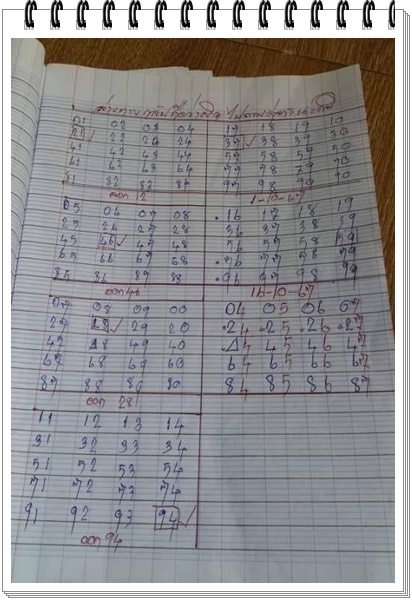 01 02 03 04 17 18 19 10
21 22 23 24 37 38 39 30
41 42 43 44 57 58 59 50
61 62 63 64 77 78 79 70
81 82 83 84 97 98 99 90
1-10-67
05 06 07 08 16 17 18 19
25 26 27 28 36 37 38 39
45 46 47 48 56 57 58 59
65 66 67 68 76 77 78 79
85 86 87 88 96 97 98 99
ออก 46 16-10-67
07 08 09 00 04 05 06 07
27 28 29 20 24 25 26 27
47 48 49 40 44 45 46 47
67 68 69 60 64 65 66 67
87 88 89 80 84 85 86 87
ออก 28
11 12 13 14
31 32 33 34
51 52 53 54
71 72 73 74
91 92 93 94
ออก 94